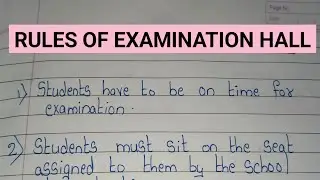 RULES OF EXAMINATION HALL
1) Students have to be on time for
examination.
2) Students must sit on the seat
assigned to them by the school